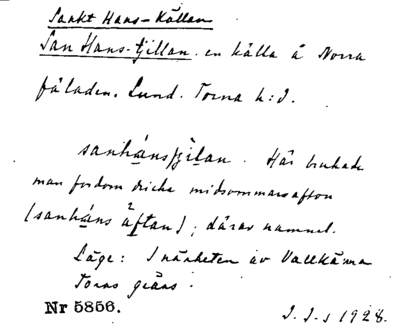 Sankt Hans-Källan
San Hans-tjillan. en källa å Norra
fäladen. Lund. Torna h:d.
sanhánstjílan. Här brukade
man fordom dricka midsommarsafton
(sanháns àftan); därav namnet.
Läge: I närheten av Vallkärra
Torns gräns.
Nr 5856.
I. I-s 1928.